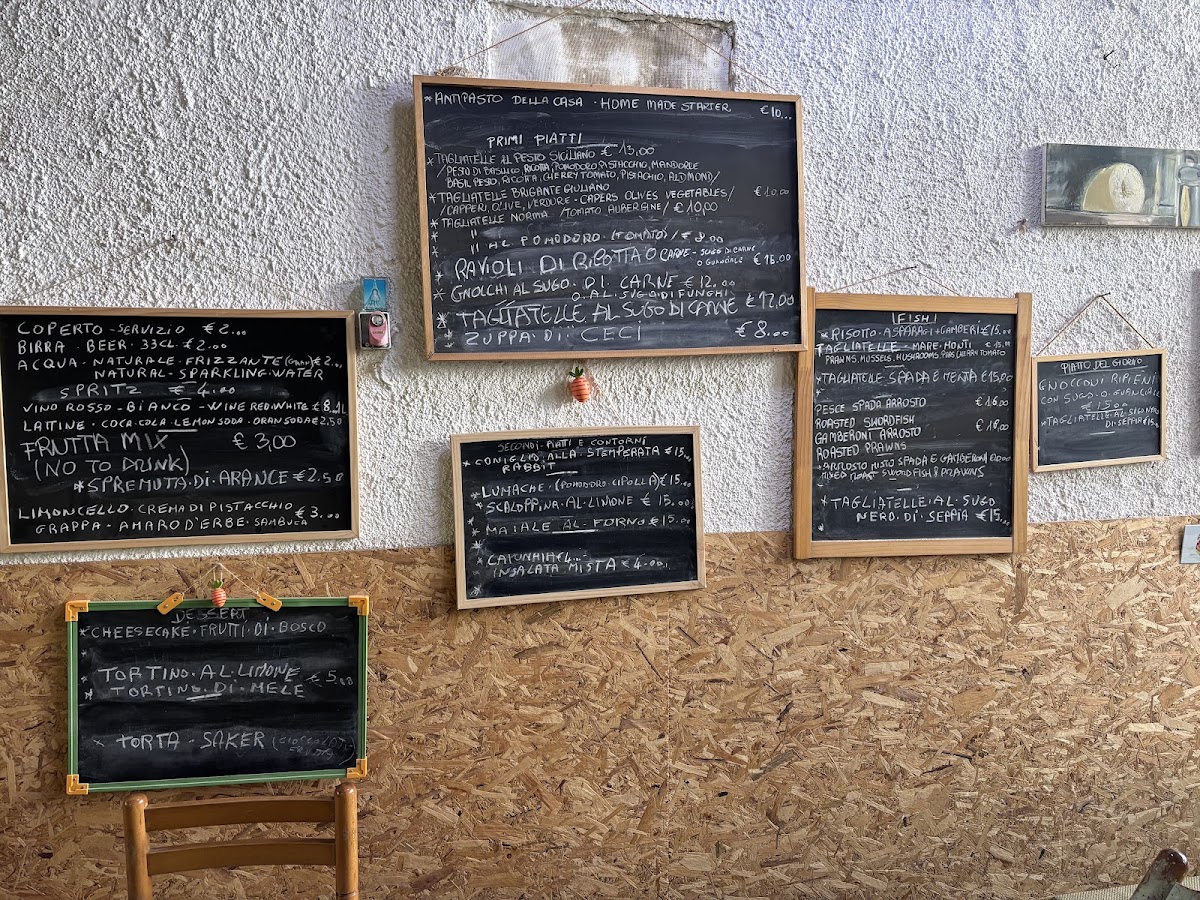 COPERTO - SERVIZIO € 2.00
BIRRA - BEER - 33CL. € 2.00
ACQUA - NATURALE - FRIZZANTE € 2..
NATURAL - SPARKLING - WATER
SPRITZ € 4.00
VINO ROSSO - BIANCO - WINE RED WHITE € 8.1L
LATTINE - COCA COLA LEMON SODA - ORAN SODA € 2.50
FRUTTA MIX € 3,00
(NO TO DRINK)
*SPREMUTA DI ARANCE € 2.50
LIMONCELLO - CREMA DI PISTACCHIO € 3..
GRAPPA - AMARO D'ERBE - SAMBUCA
DESSERT
*CHEESECAKE - FRUTTI - DI - BOSCO
* TORTINO - AL LIMONE € 5.00
* TORTINO - DI - MELE
* TORTA - SAKER
*ANTIPASTO DELLA CASA - HOME MADE STARTER €10,..
PRIMI PIATTI
*TAGLIATELLE AL PESTO SICILIANO € 13,00
/PESTO DI BASILICO, RICOTTA, POMODORO, PISTACCHIO, MANDORLE
BASIL PESTO, RICOTTA, CHERRY TOMATO, PISTACHIO, ALDMOND/
*TAGLIATELLE BRIGANTE GIULIANO
/CAPPERI, OLIVE, VERDURE - CAPERS OLIVES VEGETABLES/ € 10,00
*TAGLIATELLE NORMA /TOMATO AUBERGINE/ € 10,00
* " AL POMODORO (TOMATO)/ € 8.00
* RAVIOLI DI RICOTTA O CARNE - SUGO DI CARNE O GUANCIALE € 15.00
* GNOLCHI AL SUGO - DI CARNE € 12.00
O AL SUGO DI FUNGHI
* TAGLIATELLE AL SUGO DI CARNE € 12,00
* ZUPPA - DI CECI € 8.00
SECONDI - PIATTI E CONTORNI
* CONIGLIO ALLA STEMPERATA € 15..
RABBIT
* LUMACHE - (POMODORO CIPOLLA) € 15.00
* SCALOPPINA - AL - LIMONE € 15.00
* MAIALE AL - FORNO € 15.00
* CAPUNATA € 4..
* INSALATA MISTA € 4.00
(FISH)
*RISOTTO - ASPARAGI + GAMBERI € 15,00
TAGLIATELLE - MARE - MONTI € 15,00
PRAWNS, MUSSELS, MUSHROOMS, CHERRY TOMATO
*TAGLIATELLE SPADA E MENTA € 15,00
PESCE SPADA ARROSTO € 16.00
ROASTED SWORDFISH
GAMBERONI ARROSTO € 16.00
ROASTED PRAWNS
*ARROSTO MISTO SPADA E GAMBERONI
MIXED ROAST SWORDFISH & PRAWNS
*TAGLIATELLE - AL - SUGO
NERO - DI - SEPPIA € 15,..
PIATTO DEL GIORNO
GNOCCONI RIPIENI
CON SUGO - O - GUANCIALE
€ 15.00
*TAGLIATELLE AL SUGO
DI SEPPIA € 15..